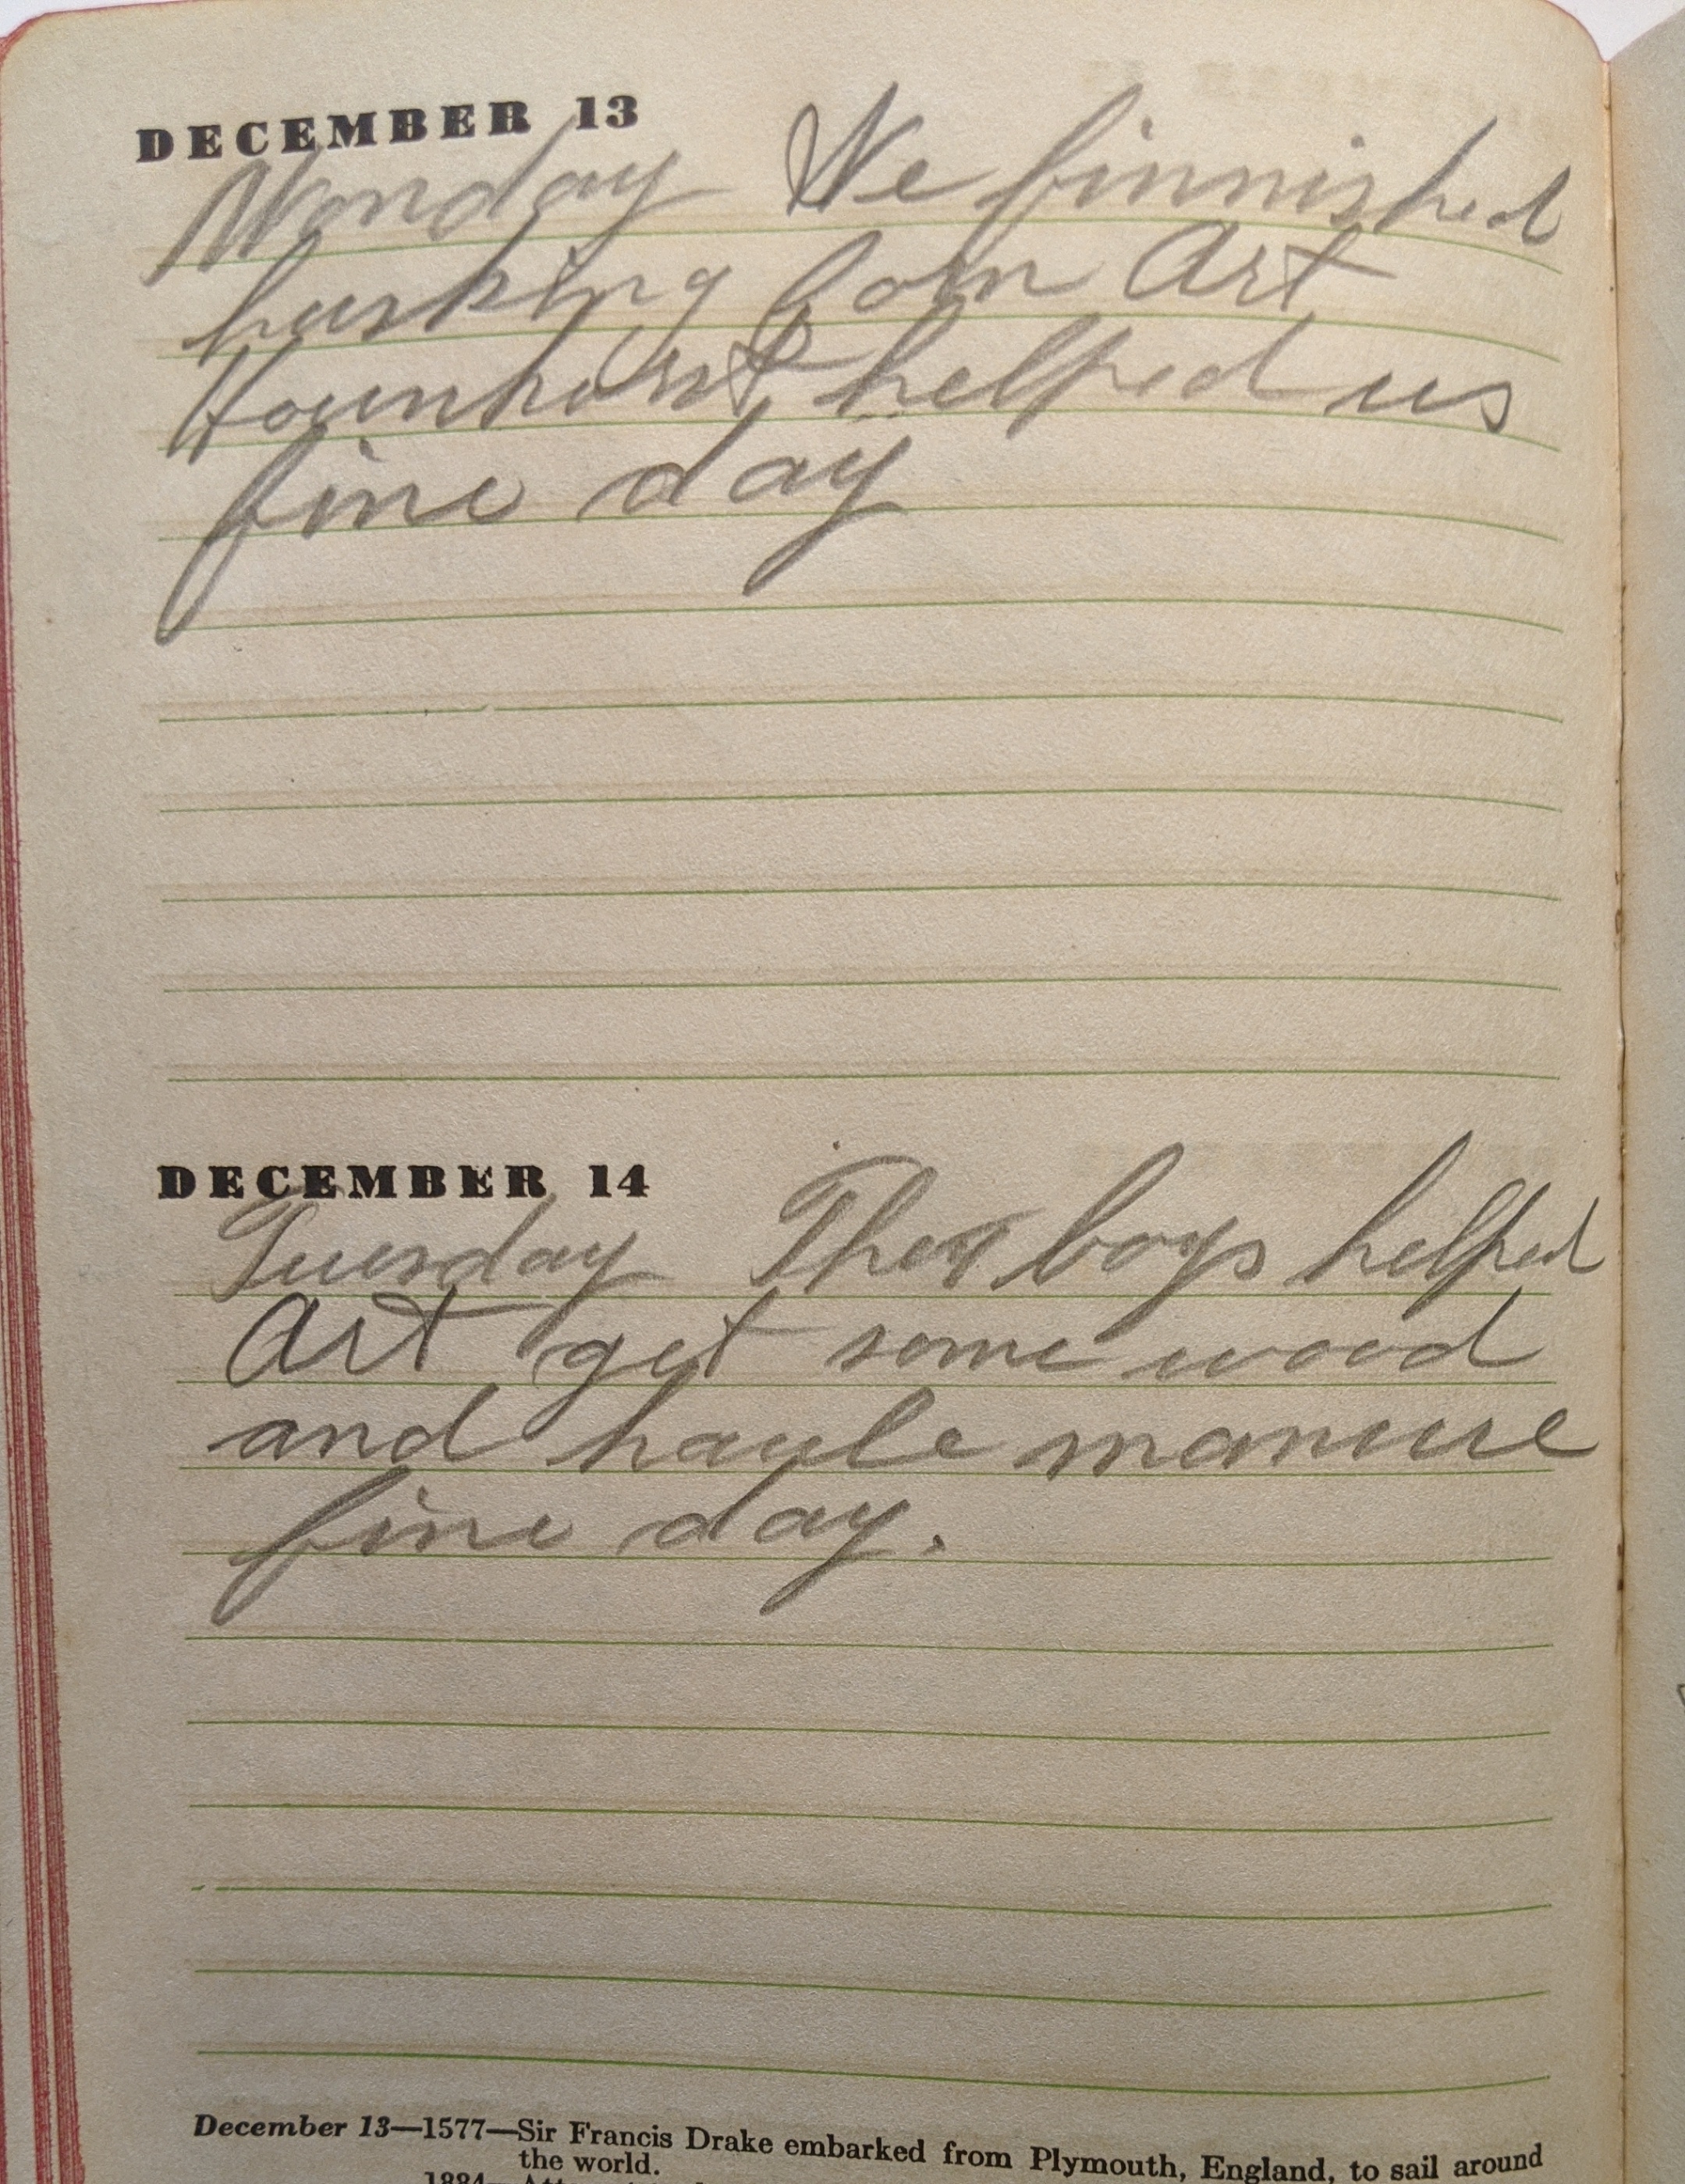 DECEMBER 13
Monday We finnished
husking Corn Art
helped us
fine day
DECEMBER 14
Tuesday The boys helped
Art get some wood
and haule manure
fine day.
December 13—1577—Sir Francis Drake embarked from Plymouth, England, to sail around
the world.
1884—